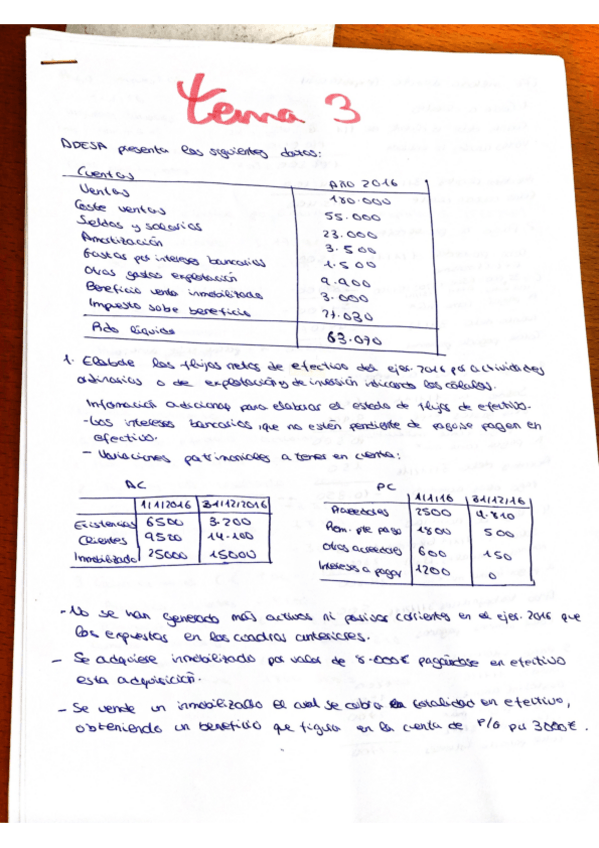 tema 3
DDESA presenta los siguientes datos:
Cuentas Año 2016
Ventas 180.000
Coste ventas 55.000
Sueldos y salarios 23.000
Amortización 3.500
Gastos por intereses bancarios 1.500
Otros gastos explotación 9.900
Beneficio venta inmovilizado 3.000
Impuesto sobe beneficio 27.030
Rdo líquido 63.070
1. Elabore los flujos netos de efectivo del ejer. 2016 por actividades
ordinarias o de explotación y de inversión indicando los cálculos.
Información adicional para elaborar el estado de flujos de efectivo.
- Los intereses bancarios, que no estén pendiente de pago se pagan en
efectivo.
- Variaciones patrimoniales a tener en cuenta:
AC
1/1/2016 31/12/2016
Existencias 6500 3.200
Clientes 9520 14.100
Inmovilizado 25000 15000
PC
1/1/16 31/12/16
Acreedores 2500 4.810
Rem. pte pago 1800 500
Otros acreedores 600 150
Intereses a pagar 1200 0
- No se han generado más activos ni pasivos corrientes en el ejer. 2016 que
los expuestos en los cuadros anteriores.
- Se adquiere inmovilizado por valor de 8.000€ pagándose en efectivo
esta adquisición.
- Se vende un inmovilizado el cual se cobra en totalidad en efectivo,
obteniendo un beneficio que figura en la cuenta de P/G por 3000€.